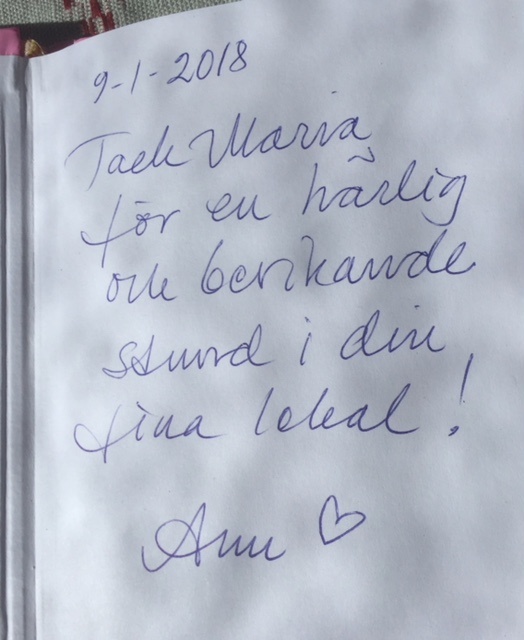 9-1-2018
Tack Maria
för en härlig
och berikande
stund i din
fina lokal!
Ann ♡